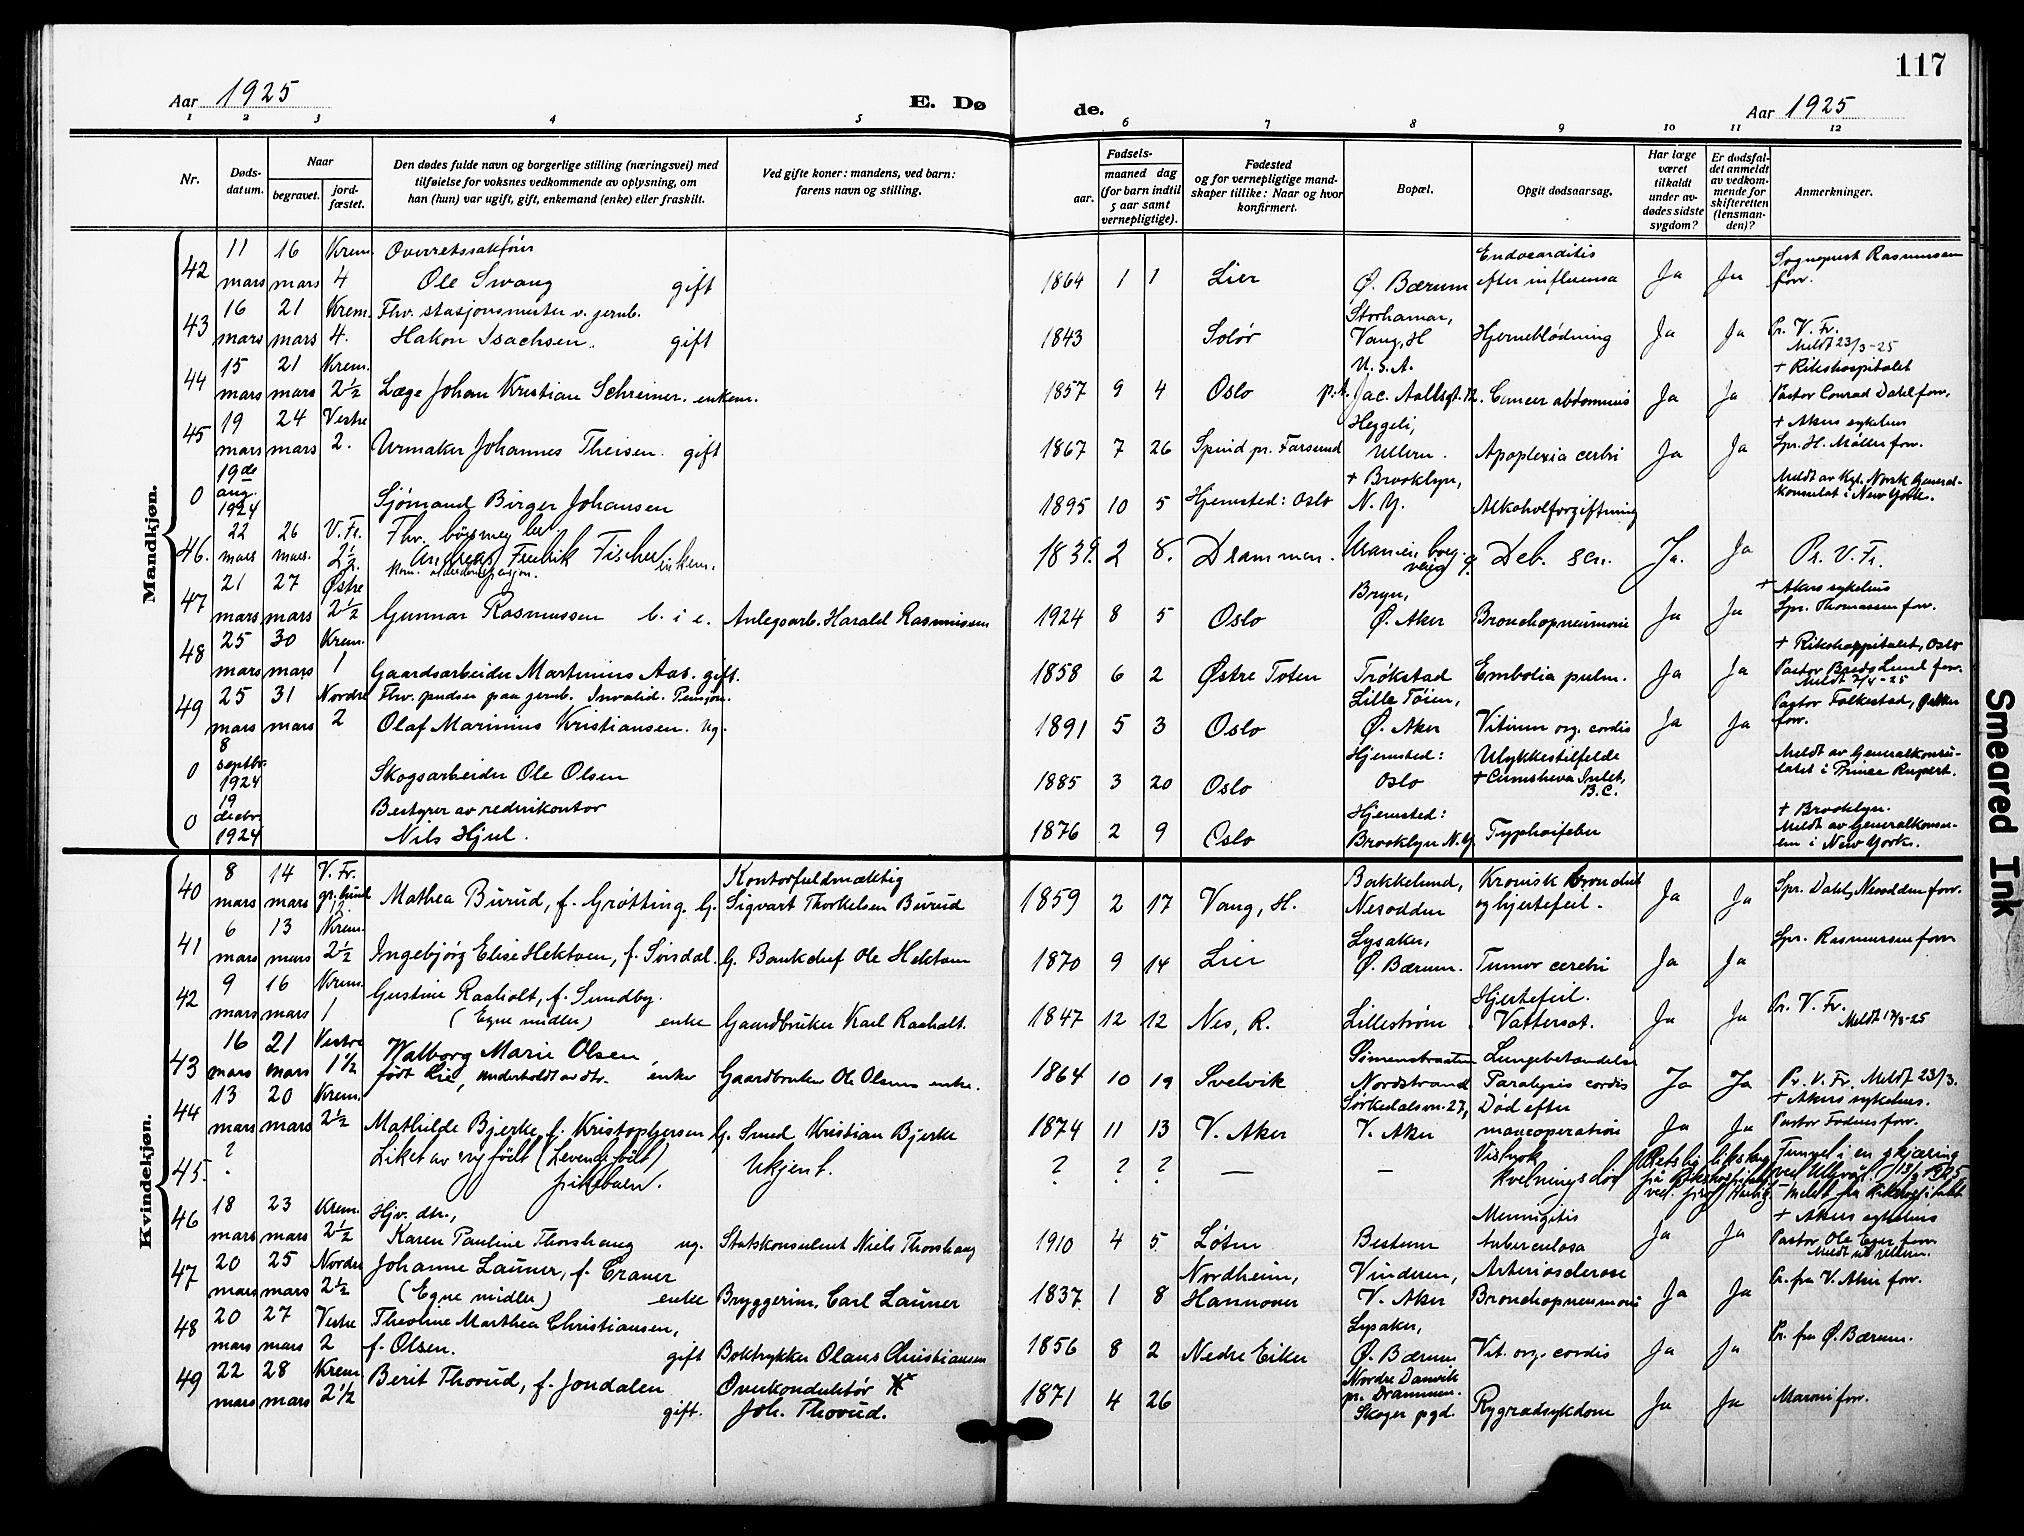 117
Aar 1925
E. Dø
de.
Aar 1925
1 2 3 4 5 6 7 8 9 10 11 12
Nr.
Døds-
datum.
Naar
begravet.
jord-
fæstet.
Den dødes fulde navn og borgerlige stilling (næringsvei) med
tilføielse for voksnes vedkommende av oplysning, om
han (hun) var ugift, gift, enkemand (enke) eller fraskilt.
Ved gifte koner: mandens, ved barn:
farens navn og stilling.
Fødsels-
aar.
maaned dag
(for barn indtil
5 aar samt
vernepligtige).
Fødested
og for vernepligtige mand-
skaper tillike: Naar og hvor
konfirmert.
Bopæl.
Opgit dødsaarsag.
Har læge
været
tilkaldt
under av-
dødes sidste
sygdom?
Er dødsfal-
det anmeldt
av vedkom-
mende for
skifteretten
(lensman-
den)?
Anmerkninger.
Mandkjøn.
42 11 mars 16 mars Krem. 4 Overretssakfører
Ole Swang gift
1864 1 1 Lier Ø. Bærum Endocarditis
efter influensa Ja Ja Sogneprest Rasmussen
forr.
43 16 mars 21 mars Krem. 4. Fhv. stasjonsmester v. jernb.
Hakon Isachsen. gift
1843 Solør Storhamar,
Vang, H Hjerneblødning Ja Ja Pr. V. Fr.
Meldt 23/3-25
44 15 mars 21 mars Krem. 2½ Læge Johan Kristian Schreiner. enkem.
1857 9 4 Oslo U.S.A.
p.t. Jac. Aallsgt. Cancer abdominis Ja Ja + Rikshospitalet
Pastor Conrad Dahl forr.
45 19 mars 24 mars Vestre 2. Urmaker Johannes Theisen. gift
1867 7 26 Spind pr. Farsund Heggeli,
Ullern. Apoplexia cerebri Ja Ja + Akers sykehus
Spr. H. Møller forr.
0 19de aug. 1924 Sjømand Birger Johansen
1895 10 5 Hjemsted: Oslo + Brooklyn,
N. Y. Alkoholforgiftning Meldt av Kgl. Norsk General-
konsulat i New York.
46. 22 mars 26 mars. V. Fr. 2½. Fhv.
Andreas Fredrik Fischer enkem.
1839. 2 8. Drammen. Uranienborg-
veien 9. Deb. sen. Ja. Ja Pr. V. Fr.
47 21 mars 27 mars Østre 2½ Gunnar Rasmussen b. i e. Anlegsarb. Harald Rasmussen
1924 8 5 Oslo Bryn,
Ø. Aker Bronchopneumonie Ja Ja + Akers sykehus
Spr. Thomassen forr.
48 25 mars 30 mars Krem. 1 Gaardsarbeider Martinius Aas. gift.
1858 6 2 Østre Toten Trøkstad Embolia pulm. Ja Ja + Rikshospitalet, Oslo
Pastor Lund forr.
Meldt 2/4-25
49 25 mars 31 mars Nordre 2 Fhv. pudser paa jernb. Invalid. Pensjon.
Olaf Marinius Kristiansen. ug.
1891 5 3 Oslo Lille Tøien,
Ø. Aker Vitium org. cordis Ja Ja Pastor Falkestad,
forr.
0 8 septbr. 1924 Skogsarbeider Ole Olsen
1885 3 20 Oslo Hjemsted:
Oslo Ulykkestilfelde
+ Cumshewa Inlet,
B.C. Meldt av Generalkonsu-
latet i Prince Rupert.
0 19 decbr. 1924 Bestyrer av rederikontor
Nils Hjul.
1876 2 9 Oslo Hjemsted:
Brooklyn N.Y. Typhoifeber + Brooklyn.
Meldt av Generalkonsu-
len i New York.
Kvindekjøn.
40 8 mars 14 mars V. Fr. 12 Mathea Burud, f. Grøtting. G. Kontorfuldmæktig
Sigvart Thorkelsen Burud
1859 2 17 Vang, H. Bakkelund,
Nesodden Kronisk Bronchit
og hjertefeil. Ja Ja Spr. Dahl, Nesodden forr.
41 6 mars 13 mars Krem. 2½ Ingebjørg Elise Hektoen, f. Sørsdal. G. Bankchef Ole Hektoen
1870 9 14 Lier Lysaker,
Ø. Bærum. Tumor cerebri Ja Ja Spr. Rasmussen forr.
42 9 mars 16 mars Krem. 1 Gustine Raaholt, f. Sundby.
(Egne midler) enke Gaardbruker Karl Raaholt.
1847 12 12 Nes, R. Lillestrøm Hjertefeil.
Vattersot. Ja Ja Pr. V. Fr.
Meldt 17/3-25
43 16 mars 21 mars Vestre 1½ Walborg Marie Olsen,
født Lie, underholdt av dtr. enke Gaardbruker Ole Olsens enke.
1864 10 19 Svelvik Simensbraaten
Nordstrand Lungebetændelse
Paralysis cordis Ja Ja Pr. V. Fr. Meldt 23/3.
44 13 mars 20 mars Krem. 2½ Mathilde Bjerke, f. Kristophersen G. Smed Kristian Bjerke
1874 11 13 V. Aker Sørkedalsvn. 27,
V. Aker Død efter
maveoperation Ja Ja + Akers sykehus.
Pastor Fodnes forr.
45. ? Liket av nyfødt (Levende født)
pikebarn. Ukjent.
? ? ? — — Vistnok
kvelningsdød Funnet i en skjæring
ved Ullevål. 13/3 1925
meldt fra Rikshospitalet
46 18 mars 23 mars Krem. 2½ Hjv. dtr.,
Karen Pauline Thorshaug ug. Statskonsulent Niels Thorshaug
1910 4 5 Løten Bestum Meningitis
tuberculosa Ja Ja + Akers sykehus
Pastor Ole Eger forr.
Meldt til Ullern.
47 20 mars 25 mars Nordre 2½ Johanne Launer, f. Craner
(Egne midler) enke Bryggerim. Carl Launer
1837 1 8 Nordheim,
Hannover Vinderen,
V. Aker Arteriosclerose
Bronchopneumoni Ja Ja Pr. fra V. Aker forr.
48 20 mars 27 mars Vestre 2 Theoline Marthea Christiansen,
f. Olsen. gift Boktrykker Olaus Christiansen
1856 8 2 Nedre Eiker Lysaker,
Ø. Bærum Vit. org. cordis Ja Ja Pr. fra Ø. Bærum.
49 22 mars 28 mars Krem. 2½ Berit Thorud, f. Jondalen
gift. Overkonduktør
Joh. Thorud.
1871 4 26 Nordre Danvik
pr. Drammen.
Skoger pgd. Rygradsykdom Ja Ja Maroni forr.
Smeared Ink